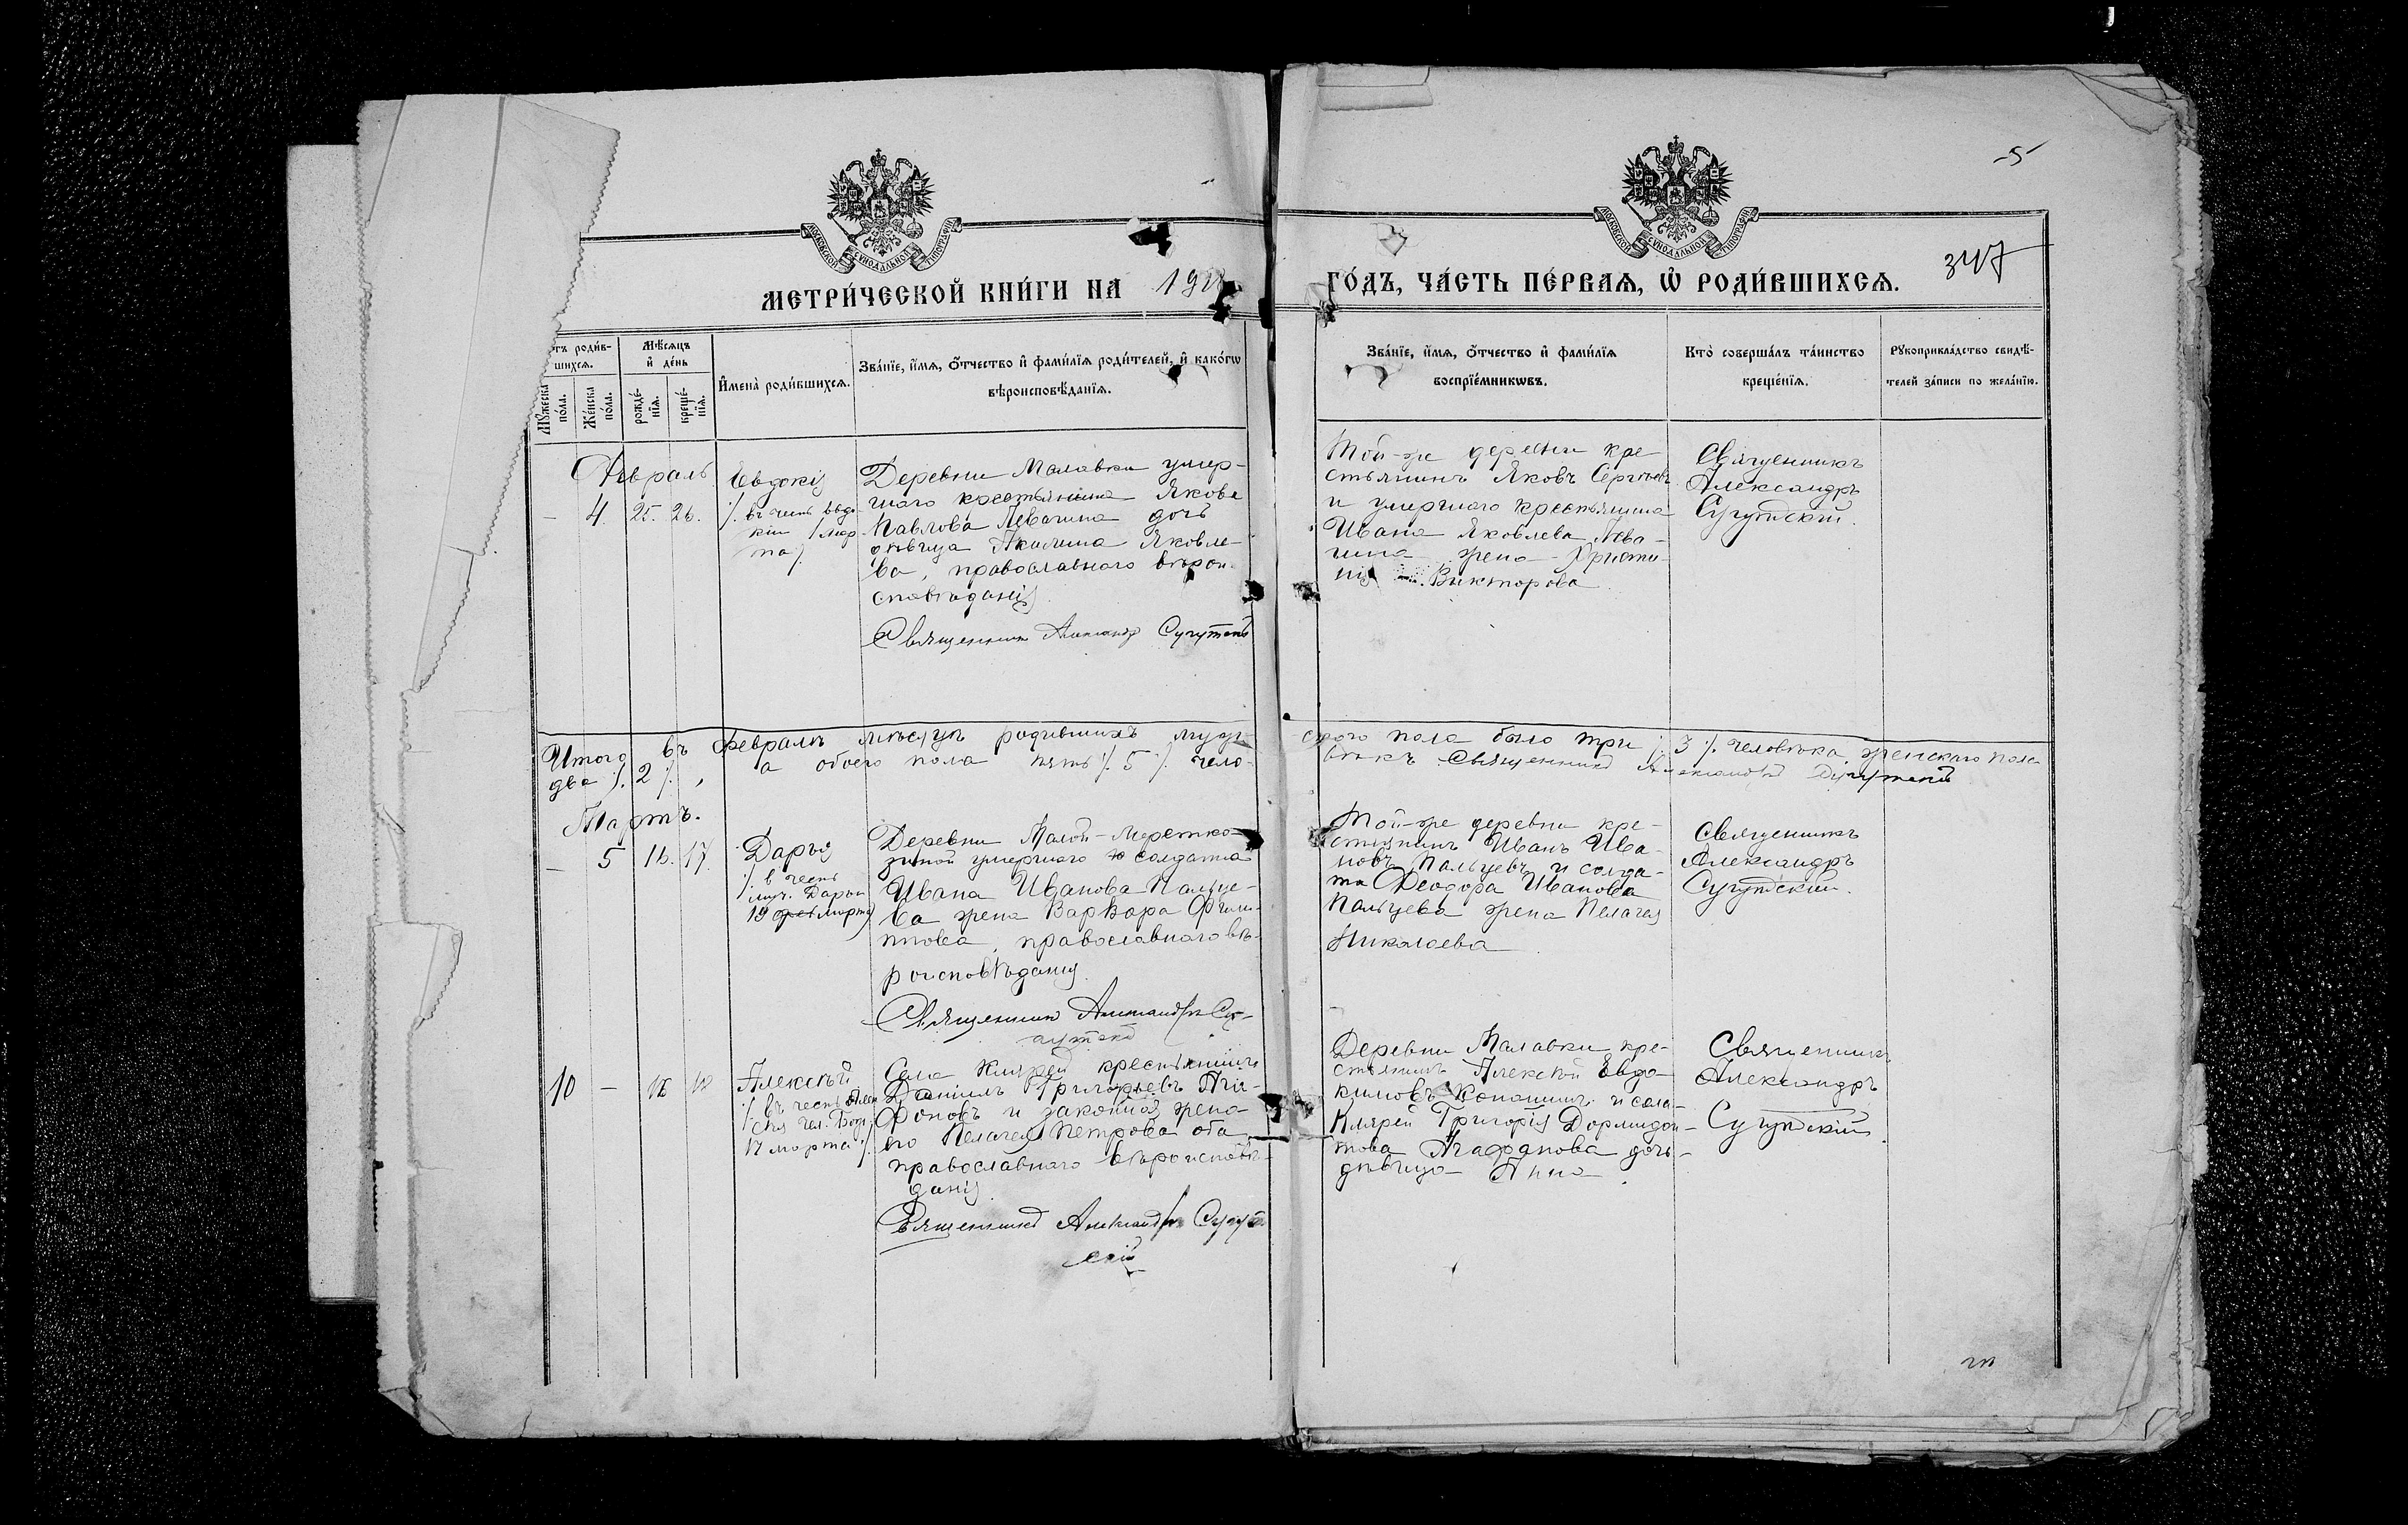 -5-
347
МЕТРИ́ЧЕСКОЙ КНИ́ГИ НА 19
ГО́ДЪ, ЧА́СТЬ ПЕ́РВАЯ, Ѡ РОДИ́ВШИХСЯ.
МОСКОВСКОЙ СѴНОДАЛЬНОЙ ТИПОГРАФІИ
МОСКОВСКОЙ СѴНОДАЛЬНОЙ ТИПОГРАФІИ
тъ роди́в-
шихся.
Мꙋжеска по́ла.
Же́нска по́ла.
Мѣ́сяцъ
и҆ де́нь
рожде́-
нїя.
креще́-
нїя.
И҆мена̀ роди́вшихся.
Зва́нїе, и҆́мя, ѻ҆́тчество и҆ фами́лїя роди́телей, и҆ како́гѡ
вѣроисповѣ́данїя.
Зва́нїе, и҆́мя, ѻ҆́тчество и҆ фами́лїя
воспрїе́мникѡвъ.
Кто̀ соверша́лъ та́инство
креще́нїя.
Рꙋкоприкла́дство свидѣ́-
телей за́писи по жела́нїю.
Февраль
– 4. 25. 26.
Евдокія
въ честь Евдо-
кіи
Деревни Малавки умер-
шаго крестьянина Якова
Павлова Левагина дочь
дѣвица Акилина Яковле-
ва, православнаго вѣрои-
сповѣданія.
Священникъ Александръ Сугутскій
Той-же деревни кре-
стьянинъ Яковъ Сергѣевъ
и умершаго крестьянина
Ивана Яковлева Лева-
гина жена Христи-
нія Викторова
Священникъ
Александръ
Сугутскій.
Итого въ февралѣ мѣсяцѣ родившихъ муж-
ского пола было три /. 3 /. человѣка, женскаго пола
два /. 2 /. , а обоего пола пять /. 5 /. чело-
вѣкъ. Священникъ Александръ Сугутскій
Мартъ.
– 5 16. 17.
Дарья
/. в честь
муч. Дарьи
19 марта
Деревни Малой-Меретко-
зиной умершаго солдата
Ивана Иванова Пальце-
ва жена Варвара Фили-
ппова, православнаго вѣ-
роисповѣданія.
Священникъ Александръ Су-
гутскій
Той-же деревни кре-
стьянинъ Иванъ Ива-
новъ Пальцевъ и солда-
та Ѳеодора Иванова
Пальцева жена Пелагея
Николаева
Священникъ
Александръ
Сугутскій.
10 – 18 18
Алексѣй
/. въ честь Алек
сѣя чел. Бож.
17 марта /.
Села Клярей крестьянинъ
Даніилъ Григорьевъ Ага-
фоновъ и законная жена
его Пелагея Петрова оба
православнаго вѣроисповѣ-
данія.
Священникъ Александръ Сугут
скій
Деревни Малавки кре-
стьянинъ Алексѣй Евдо-
кимовъ Кononинъ и села
Клярей Григорія Дормидон-
това Агафонова дочь-
дѣвица Анна.
Священникъ
Александръ
Сугутскій